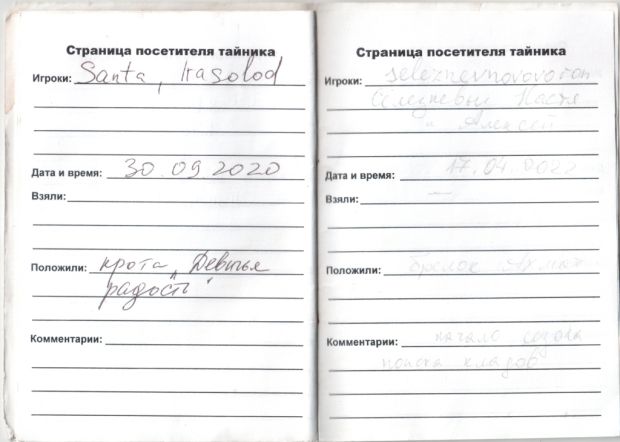 Страница посетителя тайника
Игроки: Santa, Irasolod
Дата и время: 30.09.2020
Взяли:
Положили: крота „Девичья
радость"
Комментарии:
Страница посетителя тайника
Игроки:
Селезневы Настя
и Алексей
Дата и время: 17.04.
Взяли: —
Положили: брелок
Комментарии: начало сезона
поиска кладов